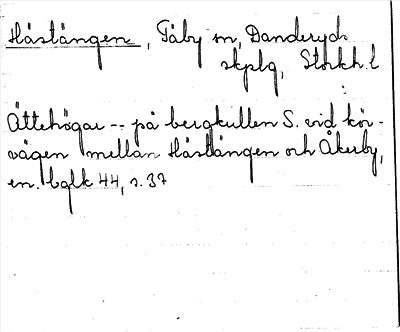 Hästängen, Täby sn, Danderyds
skplg, Stockh. l
:
Ättehögar -- på bergkullen S. vid kör-
vägen mellan Hästängen och Åkerby,
en. bglk 44, s. 37